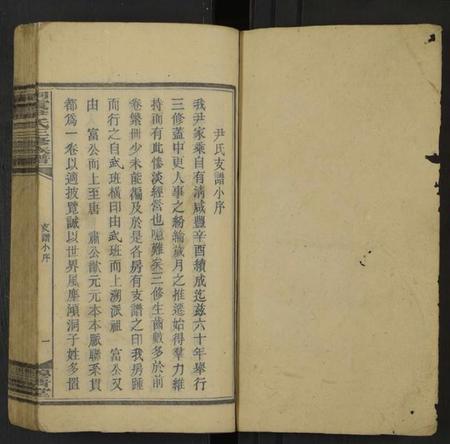 尹氏支譜小序
我尹家乘自有清咸豐辛酉續成迄茲六十年舉行
三修蓋中更人事之紛綸歲月之推遷始得羣力維
持而有此慘淡經營也噫難矣三修生齒數多於前
卷繁冊少未能徧及於是各房有支譜之印我房踵
而行之自武班橫印由武班而上溯派祖 富公又
由 富公而上至唐 肅公猷元元本本脈聯系貫
都爲一卷以適披覽誠以世界風塵澒洞子姓多僑
支譜小序
一